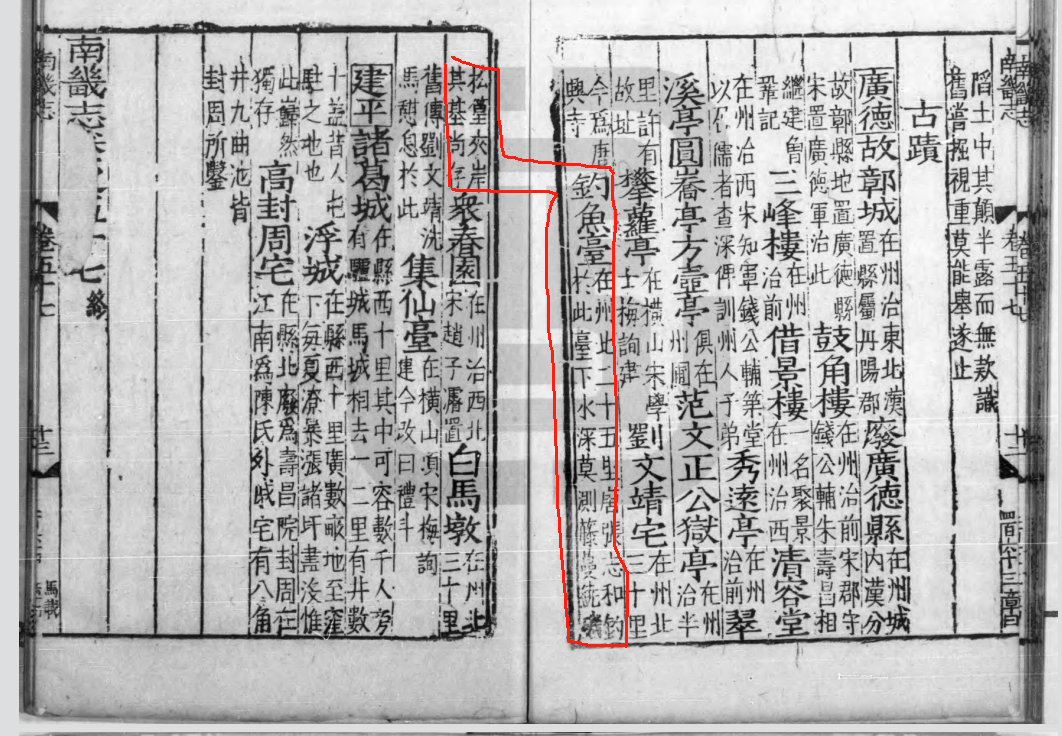 南畿志
卷五十七
十二
陷土中其顛半露而無款識
舊嘗掘視重莫能舉遂止
古蹟
廣德故鄣城在州治東北漢置縣屬丹陽郡廢廣德縣在州城內漢分
故鄣縣地置廣德縣宋置廣德軍治此鼓角樓在州治前宋郡守錢公輔朱壽昌相
繼建曾鞏記三峰樓在州治前借景樓一名聚景在州治西清容堂
在州治西宋知軍錢公輔築堂以召儒者查深俾訓州人子弟秀遠亭在州治前翠
溪亭圓嶠亭方壺亭俱在州圃范文正公獄亭在州治半
里許有故址攀蘿亭在橫山宋學士梅詢建劉文靖宅在州北三十里
今爲唐興寺釣魚臺在州北二十五里唐張志和釣於此臺下水深莫測藤蔓繞
松篁夾岸其基尚存衆春園在州治西北宋趙子潚置白馬墩在州北三十里
舊傳劉文靖洗馬憩息於此集仙臺在橫山頂宋梅詢建今改曰禮斗
建平諸葛城在縣西十里其中可容數千人旁有驢城馬城相去一二里有井數
十益昔人屯駐之地也浮城在縣西十里廣數畝地至窪下每夏潦暴漲諸圩盡沒惟
此巋然獨存高封周宅在縣北廢爲壽昌院封周在江南爲陳氏外戚宅有八角
井九曲池皆封周所鑿
南畿志卷之五十七終
南畿志
卷五十七
十三